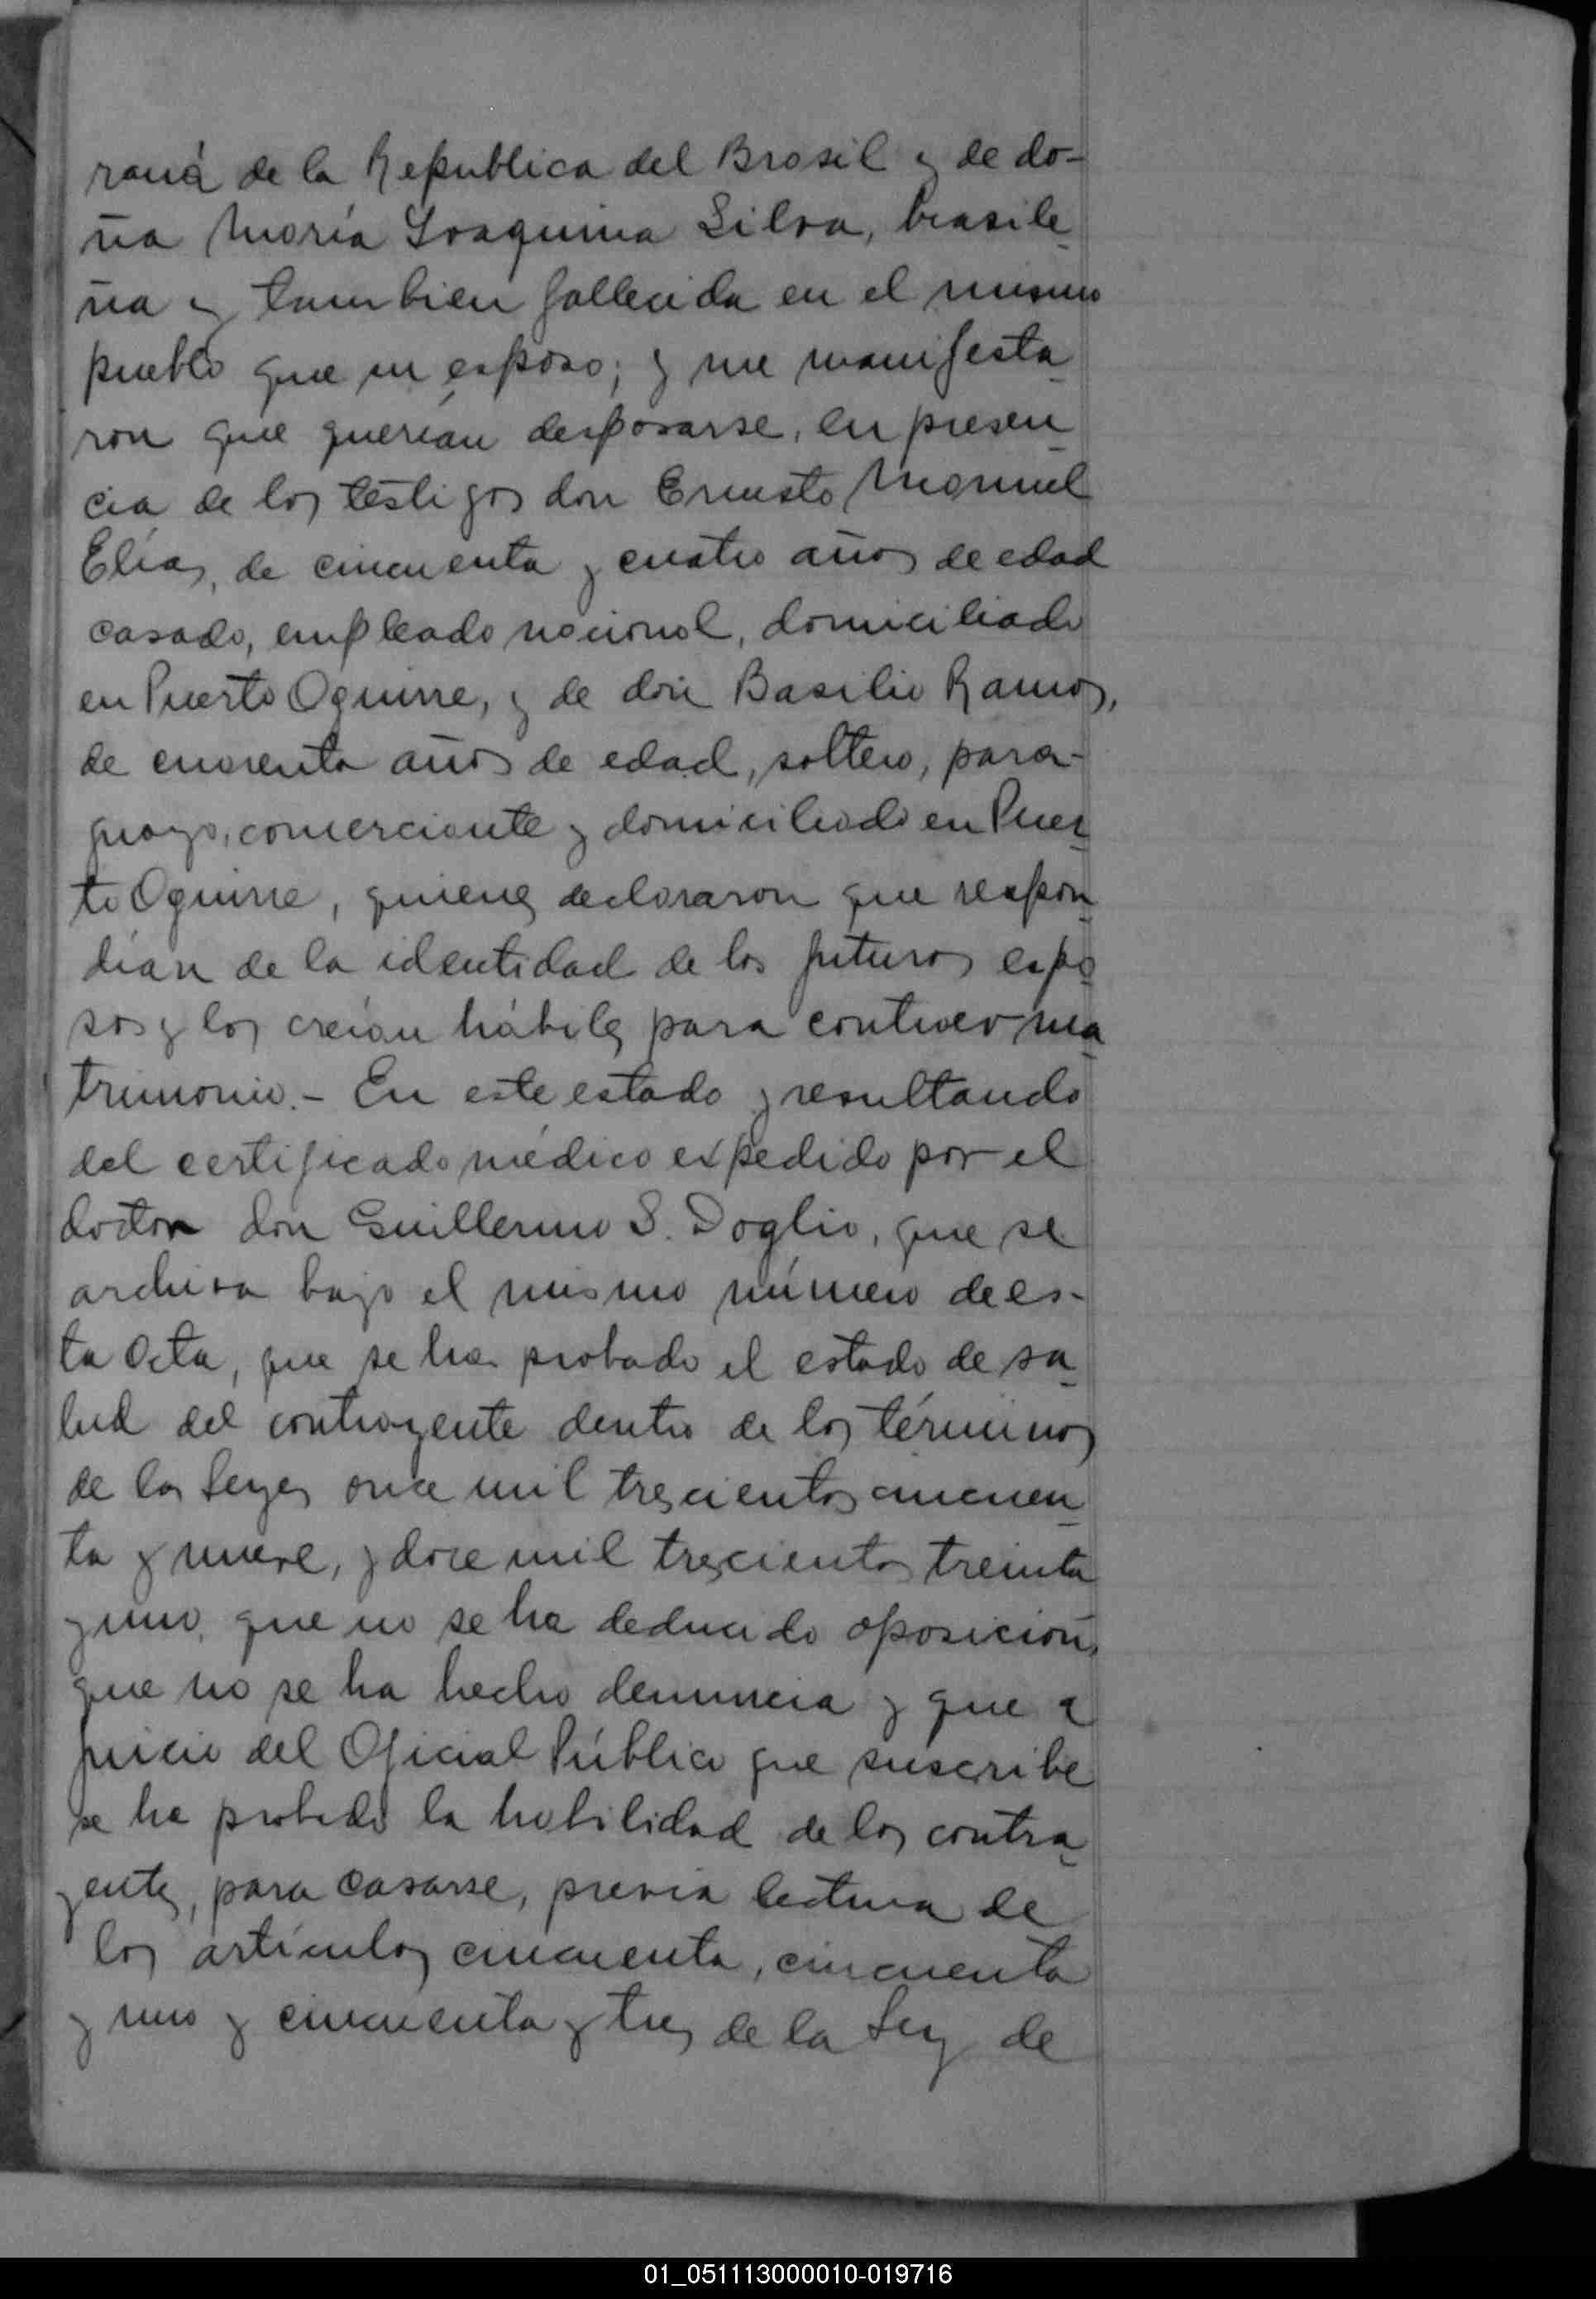 raná de la Republica del Brasil y de do-
ña María Joaquina Silva, brasile
ña y tambien fallecida en el mismo
pueblo que su esposo; y me manifesta
ron que querían desposarse, en presen
cia de los testigos don Ernesto Manuel
Elías, de cincuenta y cuatro años de edad
casado, empleado nacional, domiciliado
en Puerto Aguirre, y de don Basilio Ramos,
de cuarenta años de edad, soltero, para-
guayo, comerciante y domiciliado en Puer
to Aguirre, quienes declararon que respon
dían de la identidad de los futuros espo
sos y los creían hábiles para contraer ma
trimonio.- En este estado y resultando
del certificado médico expedido por el
doctor don Guillermo S. Doglio, que se
archiva bajo el mismo número de es-
ta Acta, que se ha probado el estado de sa
lud del contrayente dentro de los términos
de las Leyes once mil trescientos cincuen
ta y nueve, y doce mil trescientos treinta
y uno, que no se ha deducido oposición,
que no se ha hecho denuncia y que a
juicio del Oficial Público que suscribe
se ha probado la habilidad de los contra
yentes, para casarse, previa lectura de
los artículos cincuenta, cincuenta
y uno y cincuenta y tres de la Ley de
01_051113000010-019716